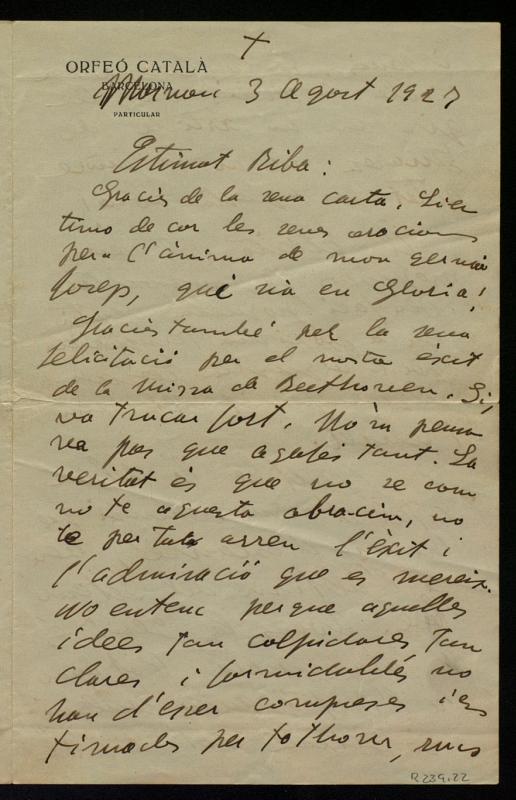 ORFEÓ CATALÀ
BARCELONA
PARTICULAR
3 Agost 1927
Estimat Riba:
Gracies de la seva carta. Li es
timo de cor les seves oracions
per a l'ànima de mon germà
Josep, que sia en Gloria!
Gracies també per la seva
felicitació per el nostre èxit
de la Missa de Beethoven. Si,
va trucar fort. No'm pensa
va pas que agafés tant. La
veritat és que no se com
no te aquesta obra cim, no
te per tot arreu l'èxit i
l'admiració que es mereix.
No entenc perque aquelles
idees tan colpidores, tan
clares i formidables no
han d'esser compreses i es
timades per tothom,
R.239.22